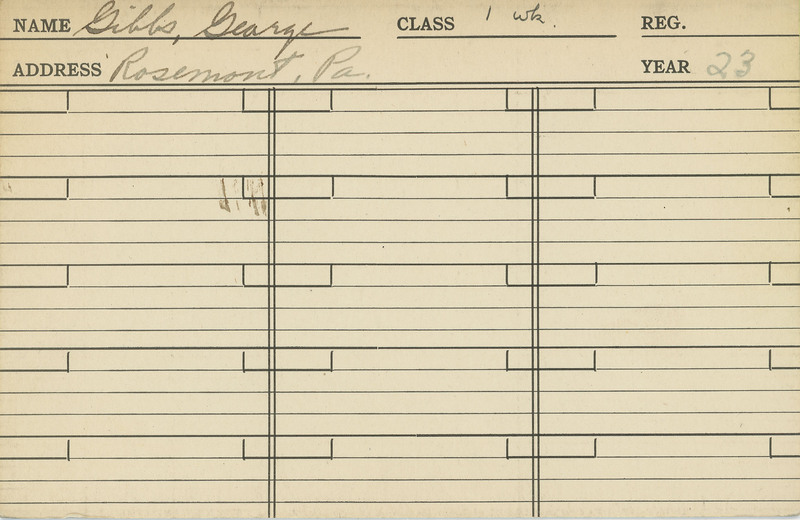 NAME Gibbs, George CLASS 1 wk. REG.
ADDRESS Rosemont, Pa. YEAR 23